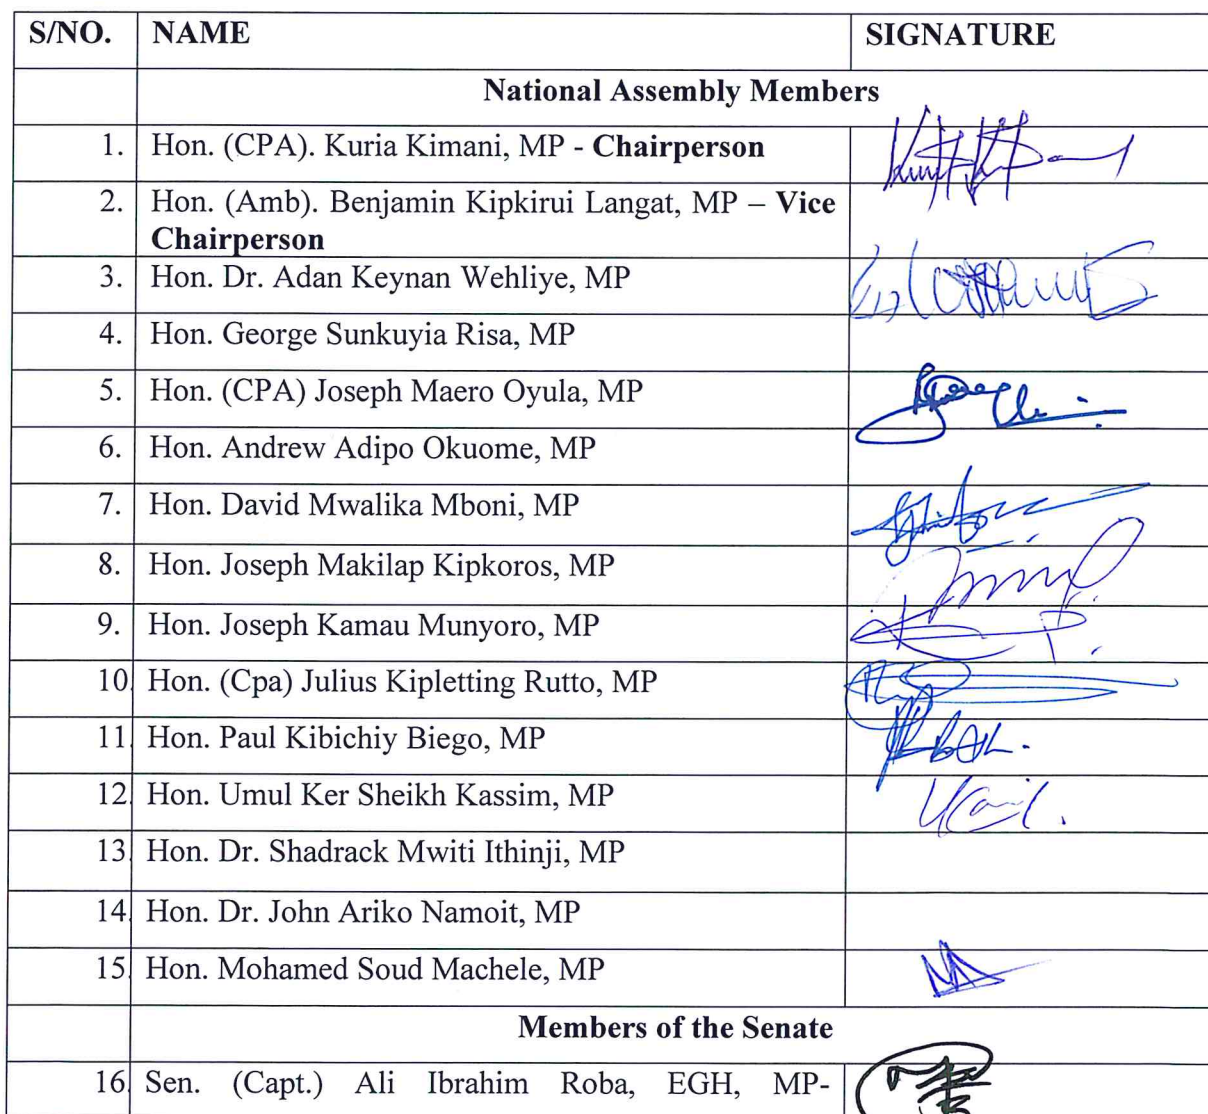 S/NO. NAME SIGNATURE
National Assembly Members
1. Hon. (CPA). Kuria Kimani, MP - Chairperson
2. Hon. (Amb). Benjamin Kipkirui Langat, MP – Vice
Chairperson
3. Hon. Dr. Adan Keynan Wehliye, MP
4. Hon. George Sunkuyia Risa, MP
5. Hon. (CPA) Joseph Maero Oyula, MP
6. Hon. Andrew Adipo Okuome, MP
7. Hon. David Mwalika Mboni, MP
8. Hon. Joseph Makilap Kipkoros, MP
9. Hon. Joseph Kamau Munyoro, MP
10. Hon. (Cpa) Julius Kipletting Rutto, MP
11. Hon. Paul Kibichiy Biego, MP
12. Hon. Umul Ker Sheikh Kassim, MP
13. Hon. Dr. Shadrack Mwiti Ithinji, MP
14. Hon. Dr. John Ariko Namoit, MP
15. Hon. Mohamed Soud Machele, MP
Members of the Senate
16. Sen. (Capt.) Ali Ibrahim Roba, EGH, MP-